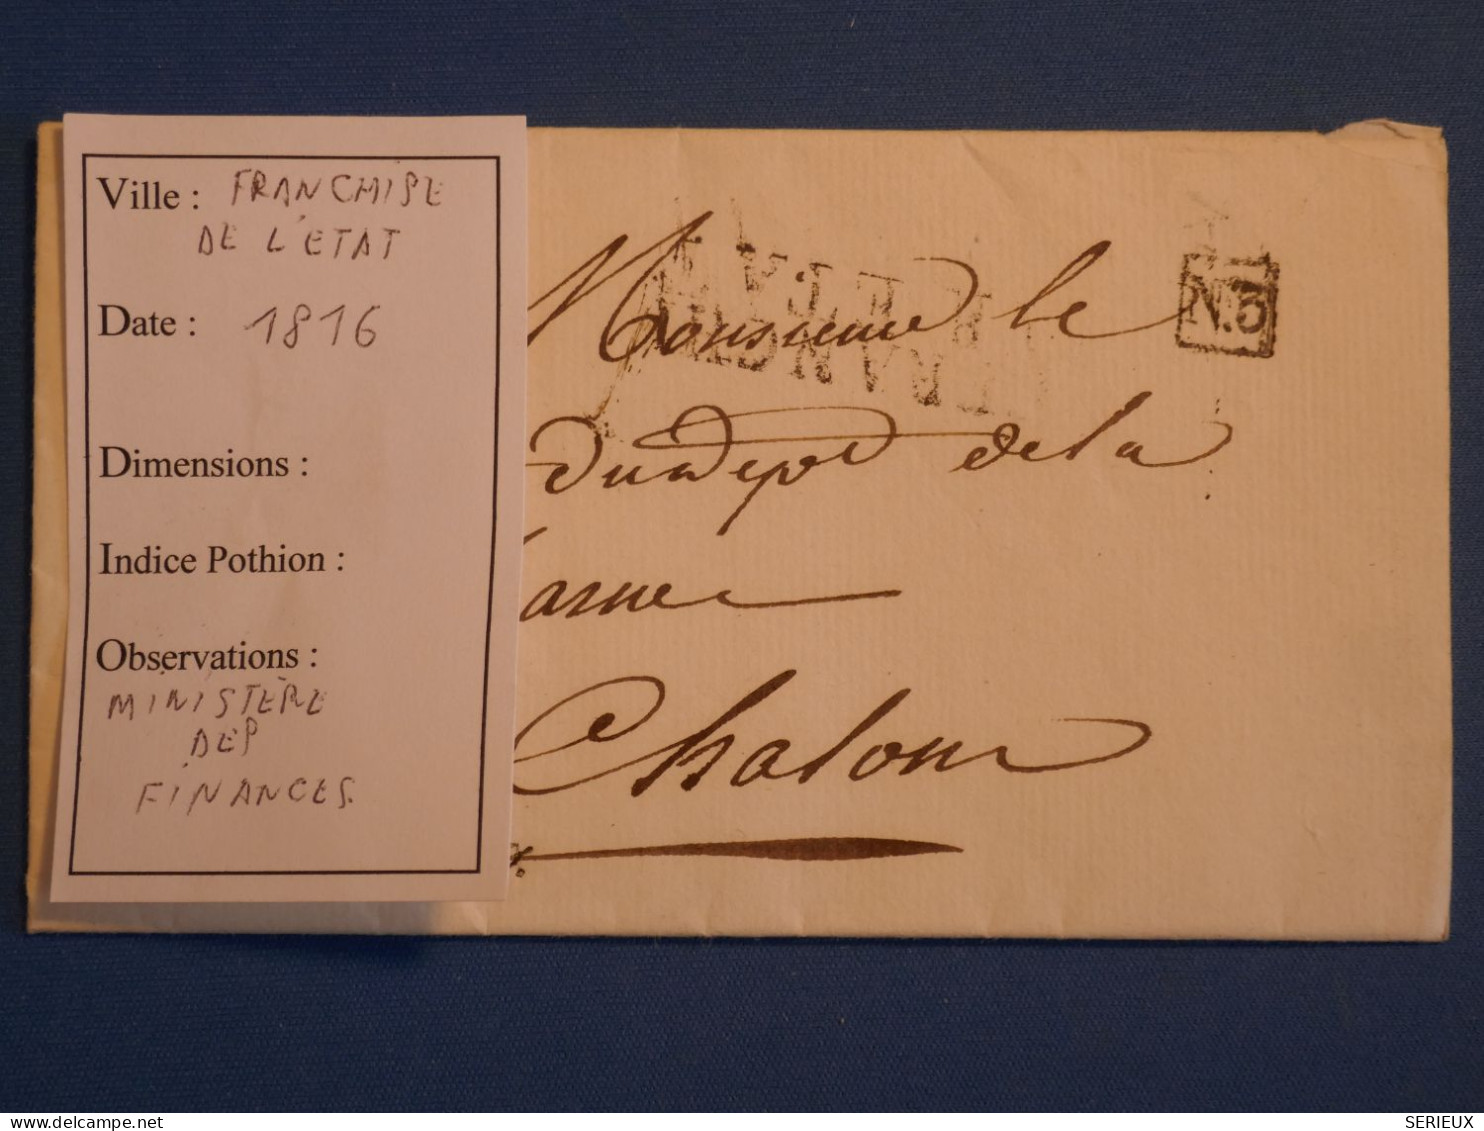 Ville : FRANCHISE
DE L'ETAT
Date : 1816
Dimensions :
Indice Pothion :
Observations :
MINISTÈRE
DES
FINANCES.
Monsieur le
du Dept de la
arne
Chalons
N.5
delcampe.net
SERIEUX